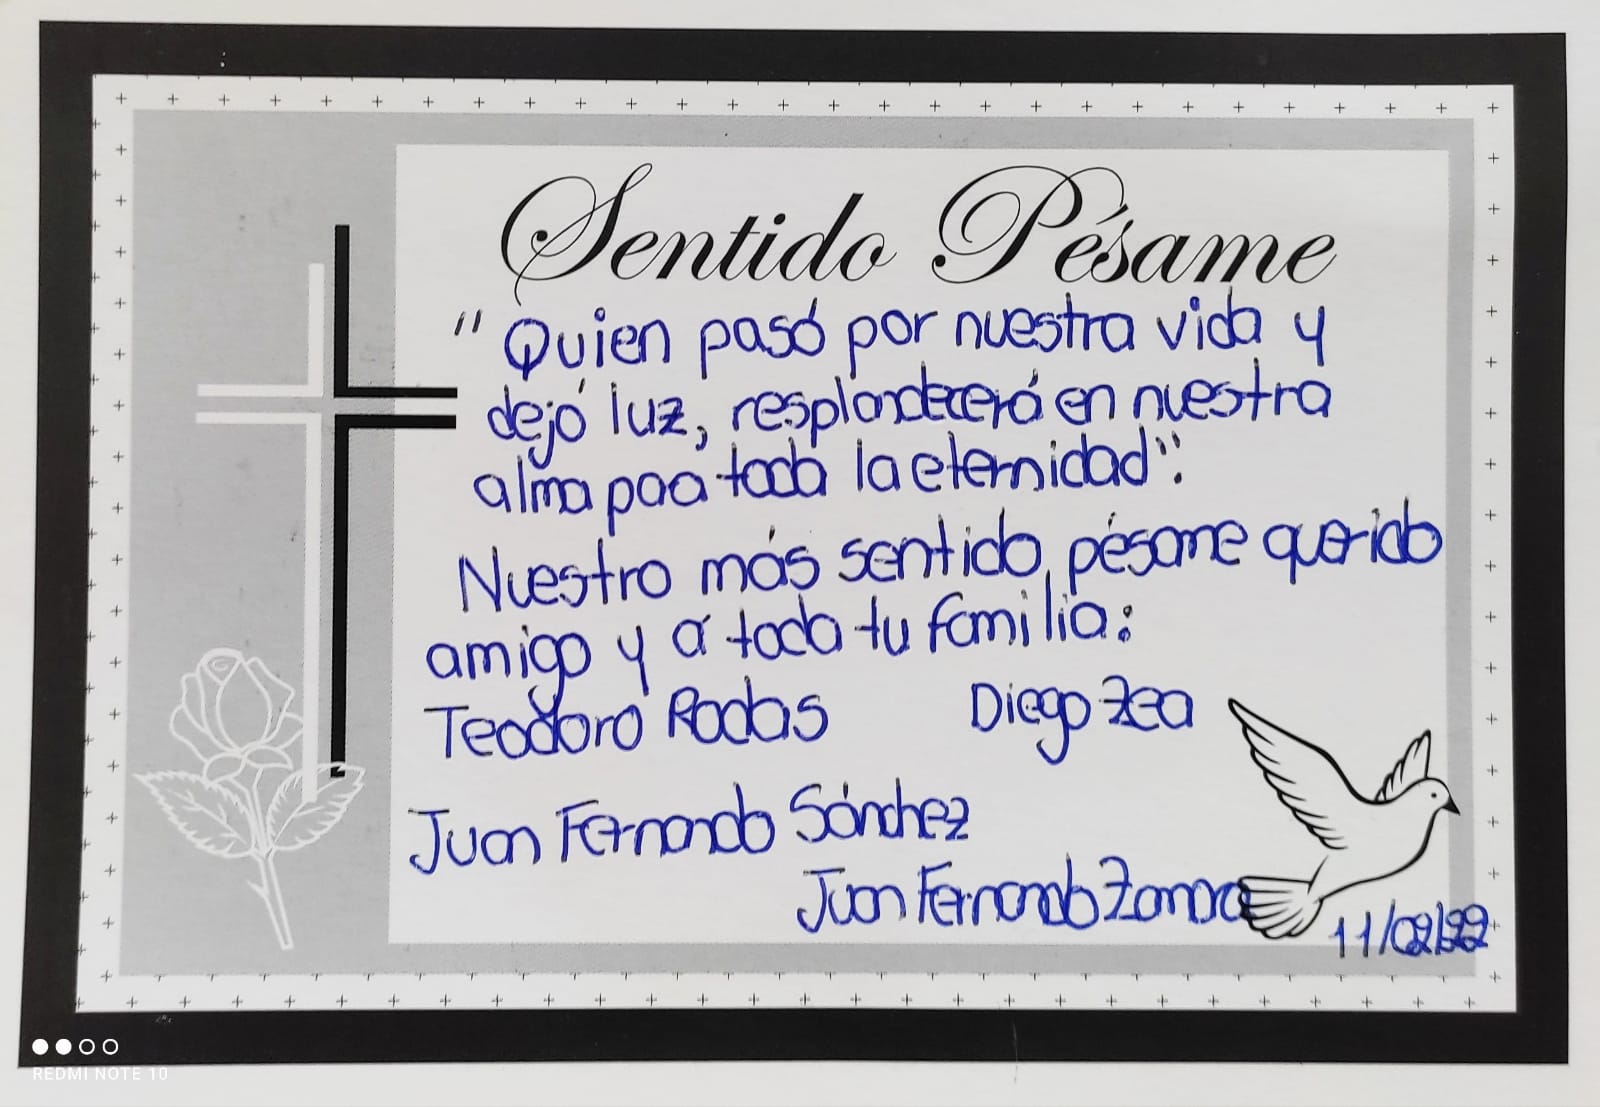 Sentido Pésame
"Quien pasó por nuestra vida y
dejó luz, resplandecerá en nuestra
alma paa toda la eternidad".
Nuestro más sentido pésame querido
amigo y á toda tu familia:
Teodoro Rodas Diego Zea
Juan Fernando Sánchez
Juan Fernando Zamora
11/02/22
REDMI NOTE 10